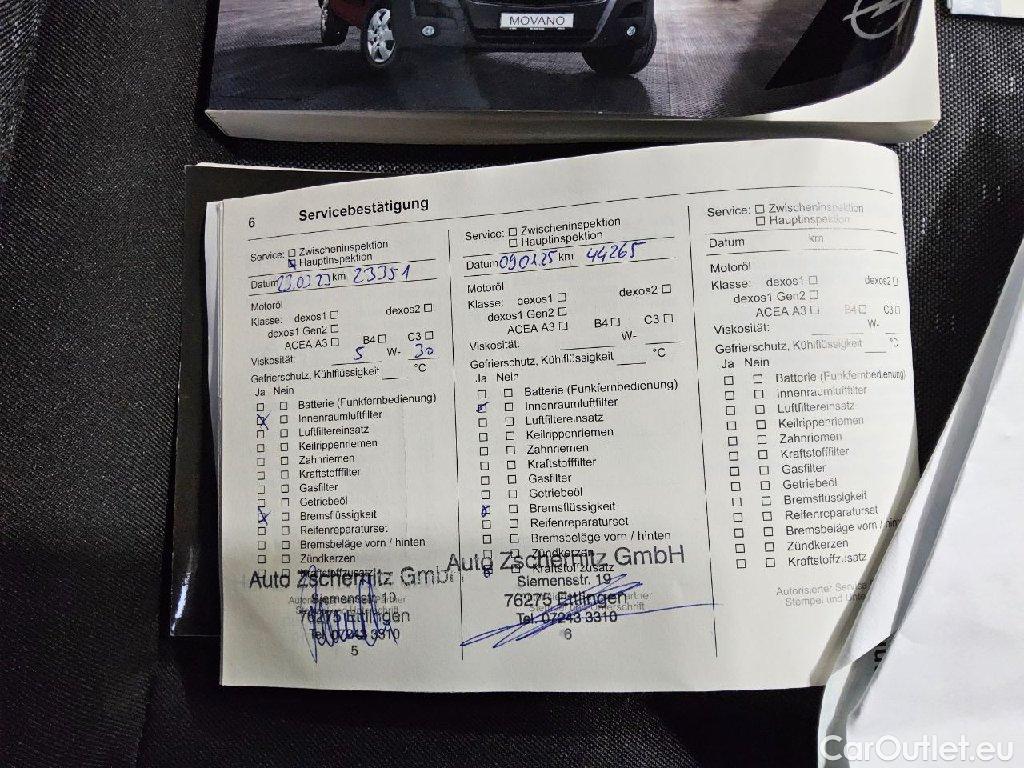 MOVANO
6 Servicebestätigung
Service: Zwischeninspektion
Hauptinspektion
Datum 23.03.23 km 23351
Motoröl
Klasse: dexos1 dexos2
dexos1 Gen2
ACEA A3 B4 C3
Viskosität: 5 W- 30
Gefrierschutz, Kühlflüssigkeit °C
Ja Nein
Batterie (Funkfernbedienung)
Innenraumluftfilter
Luftfiltereinsatz
Keilrippenriemen
Zahnriemen
Kraftstofffilter
Gasfilter
Getriebeöl
Bremsflüssigkeit
Reifenreparaturset
Bremsbeläge vorn / hinten
Zündkerzen
Auto Zschernitz GmbH
Siemensstr. 19
76275 Ettlingen
Tel. 07243 3310
5
Service: Zwischeninspektion
Hauptinspektion
Datum 090125 km 44265
Motoröl
Klasse: dexos1 dexos2
dexos1 Gen2
ACEA A3 B4 C3
Viskosität: W-
Gefrierschutz, Kühlflüssigkeit °C
Ja Nein
Batterie (Funkfernbedienung)
Innenraumluftfilter
Luftfiltereinsatz
Keilrippenriemen
Zahnriemen
Kraftstofffilter
Gasfilter
Getriebeöl
Bremsflüssigkeit
Reifenreparaturset
Bremsbeläge vorn / hinten
Zündkerzen
Kraftstoffzusatz
Auto Zschernitz GmbH
Siemensstr. 19
76275 Ettlingen
Tel. 07243 3310
6
Service: Zwischeninspektion
Hauptinspektion
Datum km
Motoröl
Klasse: dexos1 dexos2
dexos1 Gen2
ACEA A3 B4 C3
Viskosität: W-
Gefrierschutz, Kühlflüssigkeit °C
Ja Nein
Batterie (Funkfernbedienung)
Innenraumluftfilter
Luftfiltereinsatz
Keilrippenriemen
Zahnriemen
Kraftstofffilter
Gasfilter
Getriebeöl
Bremsflüssigkeit
Reifenreparaturset
Bremsbeläge vorn / hin
Zündkerzen
Kraftstoffzusatz
Autorisierter Service
Stempel und Unte
CarOutlet.eu